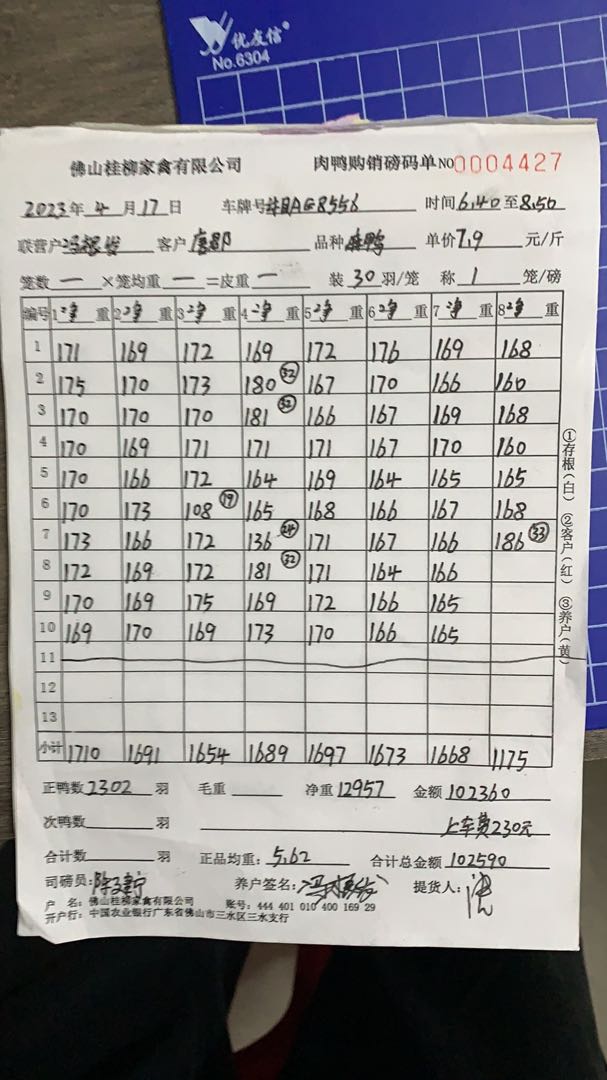 优友信
No.6304
佛山桂柳家禽有限公司 肉鸭购销磅码单 NO 0004427
2023年 4月 17日 车牌号 AG8556 时间 6.40 至 8.50
联营户 冯 客户 唐 品种 麻鸭 单价 7.9 元/斤
笼数 一 ×笼均重 一 =皮重 一 装 30 羽/笼 称 1 笼/磅
编号 1净重 2净重 3净重 4净重 5净重 6净重 7净重 8净重
1 171 169 172 169 172 176 169 168
2 175 170 173 180 (32) 167 170 166 160
3 170 170 170 181 (32) 166 167 169 168
4 170 169 171 171 171 167 170 160
5 170 166 172 164 169 164 165 165
6 170 173 108 (19) 165 168 166 167 168
7 173 166 172 136 (24) 171 167 166 186 (33)
8 172 169 172 181 (32) 171 164 166
9 170 169 175 169 172 166 165
10 169 170 169 173 170 166 165
11
12
13
小计 1710 1691 1654 1689 1697 1673 1668 1175
①存根(白) ②客户(红) ③养户(黄)
正鸭数 2302 羽 毛重 净重 12957 金额 102360
次鸭数 羽 上车费230元
合计数 羽 正品均重: 5.62 合计总金额 102590
司磅员: 陈建宁 养户签名: 冯 提货人:
户 名: 佛山桂柳家禽有限公司 账号: 444 401 010 400 169 29
开户行: 中国农业银行广东省佛山市三水区三水支行